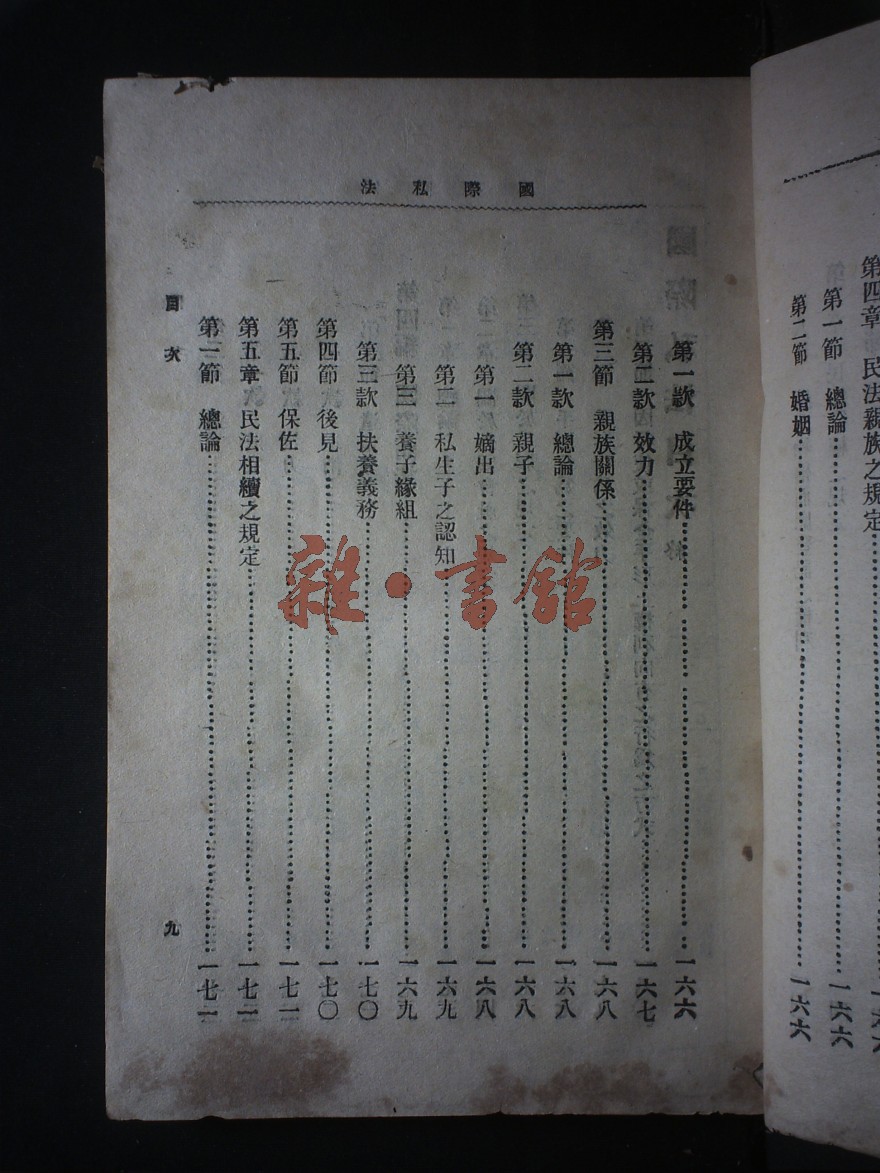 第四章 民法親族之規定
第一節 總論 一六六
第二節 婚姻 一六六
國際私法
第一款 成立要件 一六六
第二款 效力 一六七
第三節 親族關係 一六八
第一款 總論 一六八
第二款 親子 一六八
第一 嫡出 一六八
第二 私生子之認知 一六九
第三 養子緣組 一六九
第三款 扶養義務 一七〇
第四節 後見 一七〇
第五節 保佐
第五章 民法相續之規定
第一節 總論
目次
九
雜·書館